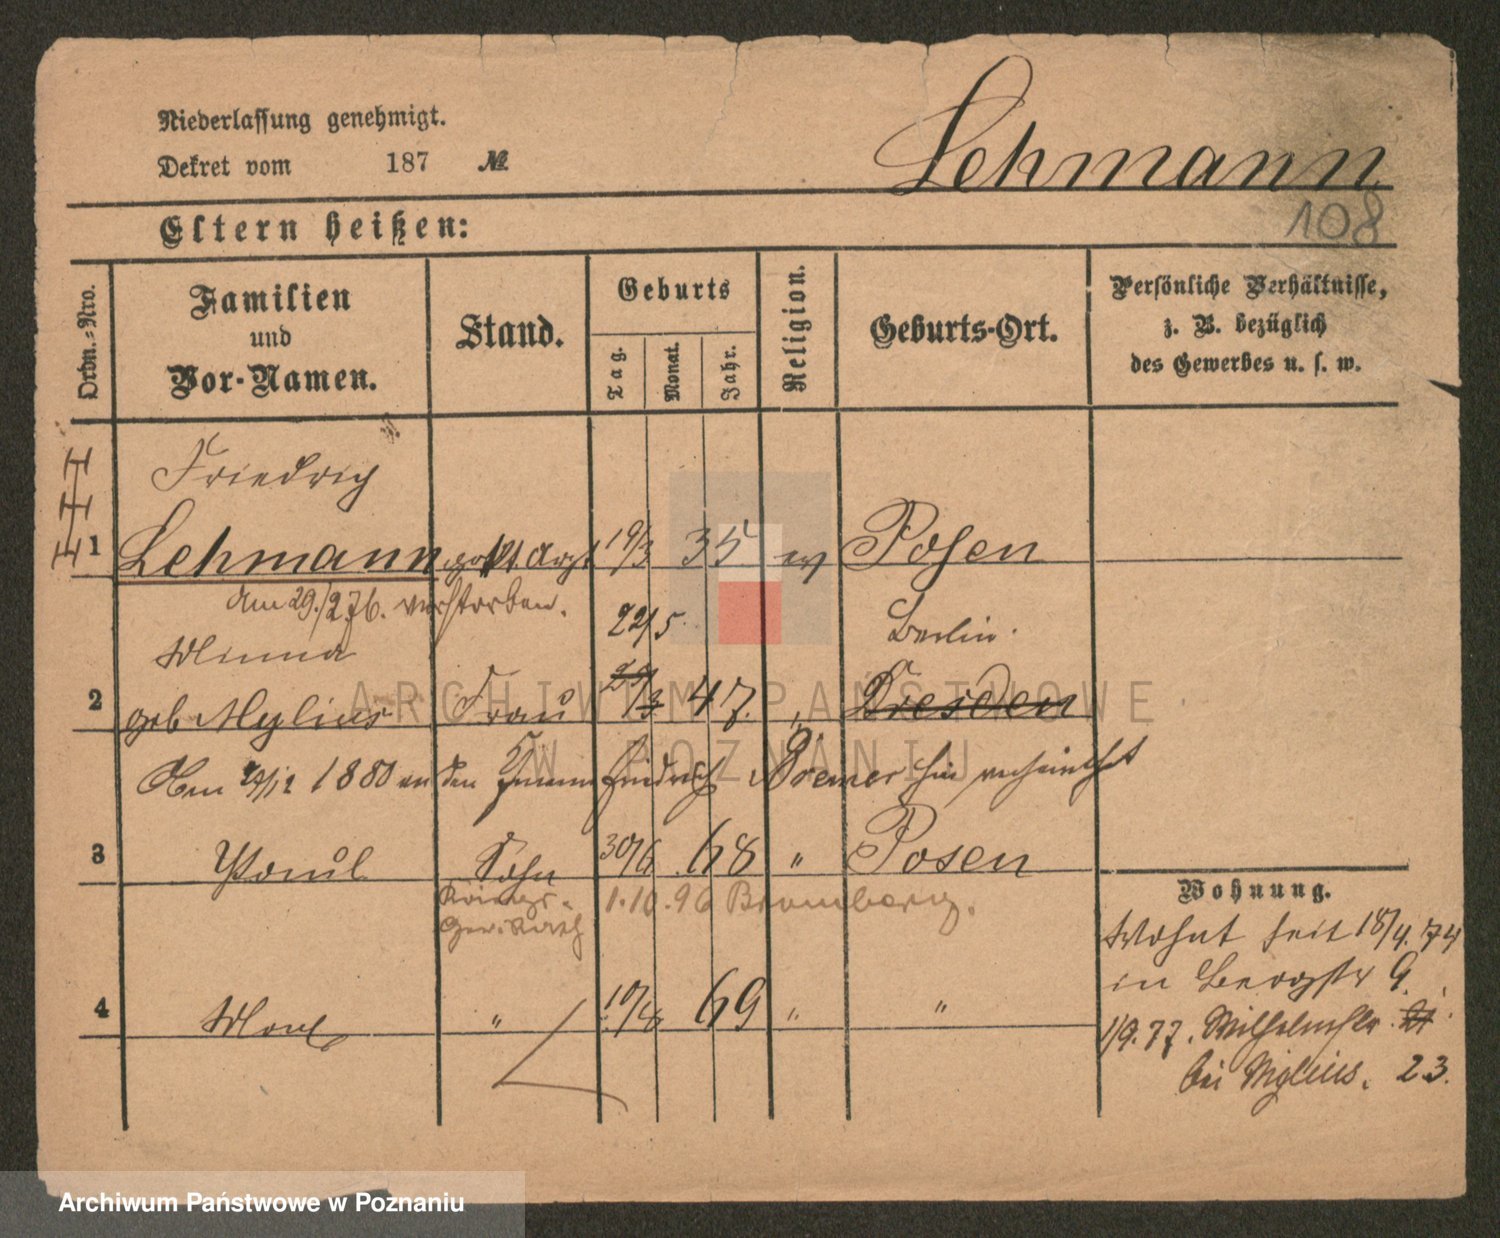 Niederlassung genehmigt.
Dekret vom 187 №
Lehmann
108
Eltern heißen:
Ordn.-Nro.
Familien
und
Vor-Namen.
Stand.
Geburts
Tag.
Monat.
Jahr.
Religion.
Geburts-Ort.
Persönliche Verhältnisse,
z. B. bezüglich
des Gewerbes u. s. w.
Friedrich
1 Lehmann pakt. Arzt 19/3 35 ev Posen
Am 29./2 76. verstorben.
Minna 22/5 Berlin.
2 geb Mylius Frau 47. " Dresden
Am 29/12 1880 an den Friedrich Bremer hier verheirathet
3 Paul Sohn 30/6 68 " Posen
1.10.96 Bromberg.
4 Max " 10/8 69 " "
Wohnung.
Wohnt seit 18/4. 74
in Bergstr 9.
1/9. 77. Wilhelmstr.
bei Mylius. 23.
ARCHIWUM PAŃSTWOWE
W POZNANIU
Archiwum Państwowe w Poznaniu